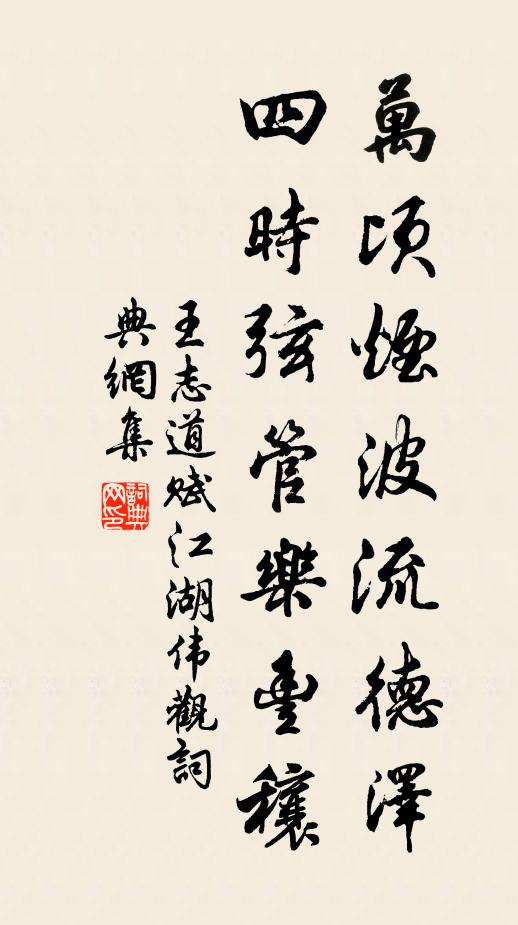 萬頃煙波流德澤
四時弦管樂豐穰
王志道赋江湖伟觀詞
典網集
詞典網印